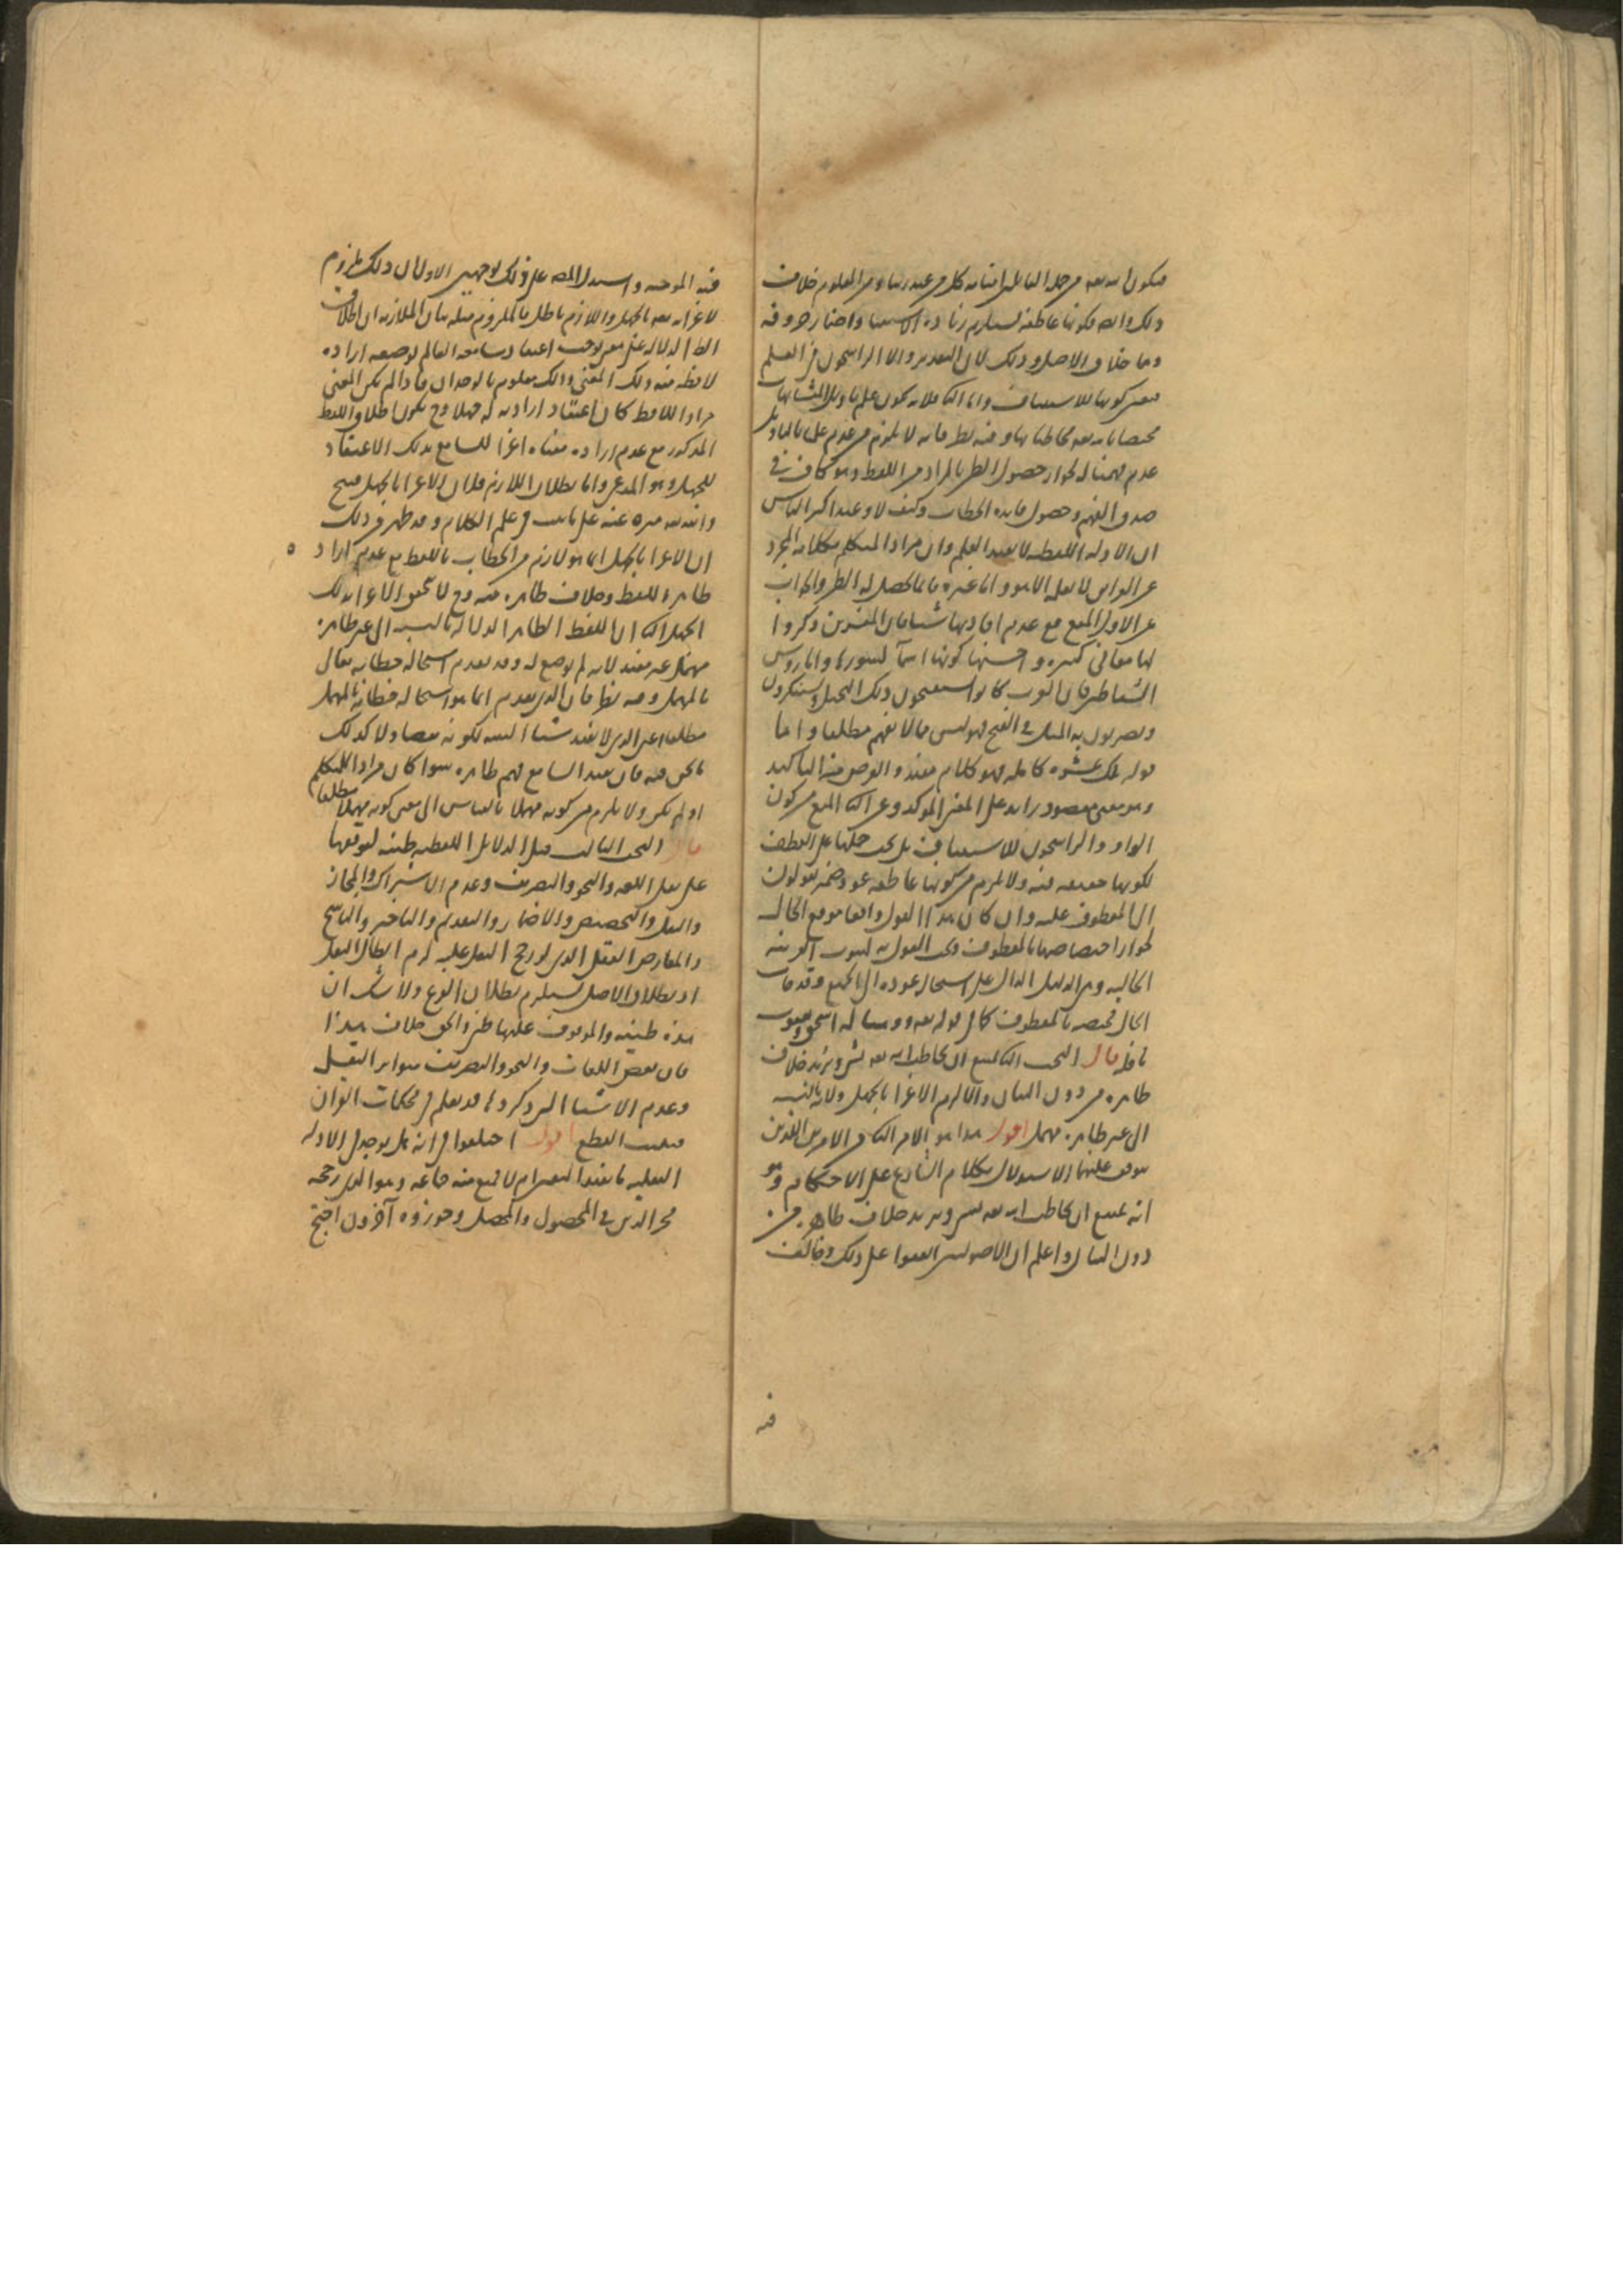 فيكون الله تعالى من جملة القائلين امنا به كل من عند ربنا ومن المعلوم خلاف
ذلك والله فكونها عاطفة يستلزم زيادة الاستثناء واضمار حرف فيه
وهما خلاف الاصل وذلك لان التقدير والا الراسخون في العلم
فتعين كونها للاستيناف واما الثاني فلانه يكون علم تاويل المتشابهات
مختصا بالله تعالى مخاطبا بها وفيه نظر فانه لا يلزم من عدم علمنا بالتاويل
عدم فهمنا له لجواز حصول الظن بالمراد من اللفظ وهو كاف في
صدق الفهم وحصول فايدة الخطاب وكيف لا وعند اكثر الناس
ان الادلة اللفظية لا تفيد العلم وان مراد المتكلم بكلامه المجرد
عن القراين لا يعلمه الا هو واما غيره فانما يحصل له الظن والجواب
عن الاول المنع مع عدم افادتها شيئا فان المفسرين ذكروا
لها معاني كثيرة واحسنها كونها اسماء للسور واما رؤس
الشياطين فان العرب كانوا يستقبحون ذلك التخيل ويستنكرون
ويضربون به المثل في القبح فهو ليس مما لا يفهم مطلقا واما
قوله تلك عشرة كاملة فهو كلام مفيد والغرض منه التاكيد
وهو معنى مقصود زايد على المعنى المؤكد وعن الثاني المنع من كون
الواو والراسخون للاستيناف بل يجب حملها على العطف
لكونها حقيقة فيه ولا يلزم من كونها عاطفة عود ضمير يقولون
الى المعطوف عليه وان كان هذا القول واقعا موقع الحال
لجواز اختصاصها بالمعطوف ويجب القول به لثبوت القرينة
الحالية وهي الدليل الدال على استحالة عوده الى الجميع وقد جاءت
الحال مختصة بالمعطوف كما في قوله تعالى ووهبنا له اسحق ويعقوب
نافلة قال البحث الثاني يمتنع ان يخاطب الله تعالى بشيء ويريد خلاف
ظاهره من دون البيان والا لزم الاغراء بالجهل ولانه بالنسبة
الى غير ظاهره مهمل اقول هذا هو الامر الثاني من الامرين اللذين
يتوقف عليهما الاستدلال بكلام الشارع على الاحكام وهو
انه يمتنع ان يخاطب الله تعالى بشيء ويريد خلاف ظاهره من
دون البيان واعلم ان الاصوليين اتفقوا على ذلك وخالفت
فيه
فيه المرجئة واستدل المصنف على ذلك بوجهين الاول ان ذلك ملزوم
لاغرائه تعالى بالجهل واللازم باطل فالملزوم مثله بيان الملازمة ان اطلاق
الظاهر الدلالة على معنى يوجب اعتقاد سامعه العالم بوضعه ارادة
لافظه منه ذلك المعنى وذلك معلوم بالوجدان فاذا لم يكن المعنى
مراد اللافظ كان اعتقاد ارادته له جهلا وح يكون اطلاق اللفظ
المذكور مع عدم ارادة معناه اغراء للسامع بذلك الاعتقاد
للجهل وهو المدعى واما بطلان اللازم فلان الاغراء بالجهل قبيح
والله تعالى منزه عنه على ما ثبت في علم الكلام وقد ظهر من ذلك
ان الاغراء بالجهل انما هو لازم من الخطاب باللفظ مع عدم ارادة
ظاهر اللفظ وخلاف ظاهره منه وح لا يتحقق الاغراء بذلك
الجهل الثاني ان اللفظ الظاهر الدلالة بالنسبة الى غير ظاهره
مهمل غير مفيد لانه لم يوضع له وقد تقدم استحالة خطابه تعالى
بالمهمل وفيه نظر فان الذي تقدم انما هو استحالة خطابه بالمهمل
مطلقا اعني الذي لا يفيد شيئا البتة لكونه نقصا ولا كذلك
ما نحن فيه فانه يفيد السامع فهم ظاهره سواء كان مراد المتكلم
او لم يكن ولا يلزم من كونه مهملا بالقياس الى معنى كونه مهملا مطلقا
قال البحث الثالث قيل الدلائل اللفظية ظنية لتوقفها
على نقل اللغة والنحو والتصريف وعدم الاشتراك والمجاز
والنقل والتخصيص والاضمار والتقديم والتاخير والناسخ
والمعارض العقلي الذي لو رجح النقل عليه لزم ابطال النقل
اذ بطلان الاصل يستلزم بطلان الفرع ولا شك ان
هذه ظنية والموقوف عليها ظني والحق خلاف هذا
فان بعض اللغات والنحو والتصريف متواتر النقل
وعدم الاشياء التي ذكروها قد يعلم في محكمات القران
فيثبت القطع اقول اختلفوا في انه هل يوجد في الادلة
النقلية ما يفيد اليقين ام لا فمنع منه جماعة وهو الذي رجحه
فخر الدين في المحصول والمحصل وجوزه آخرون احتج